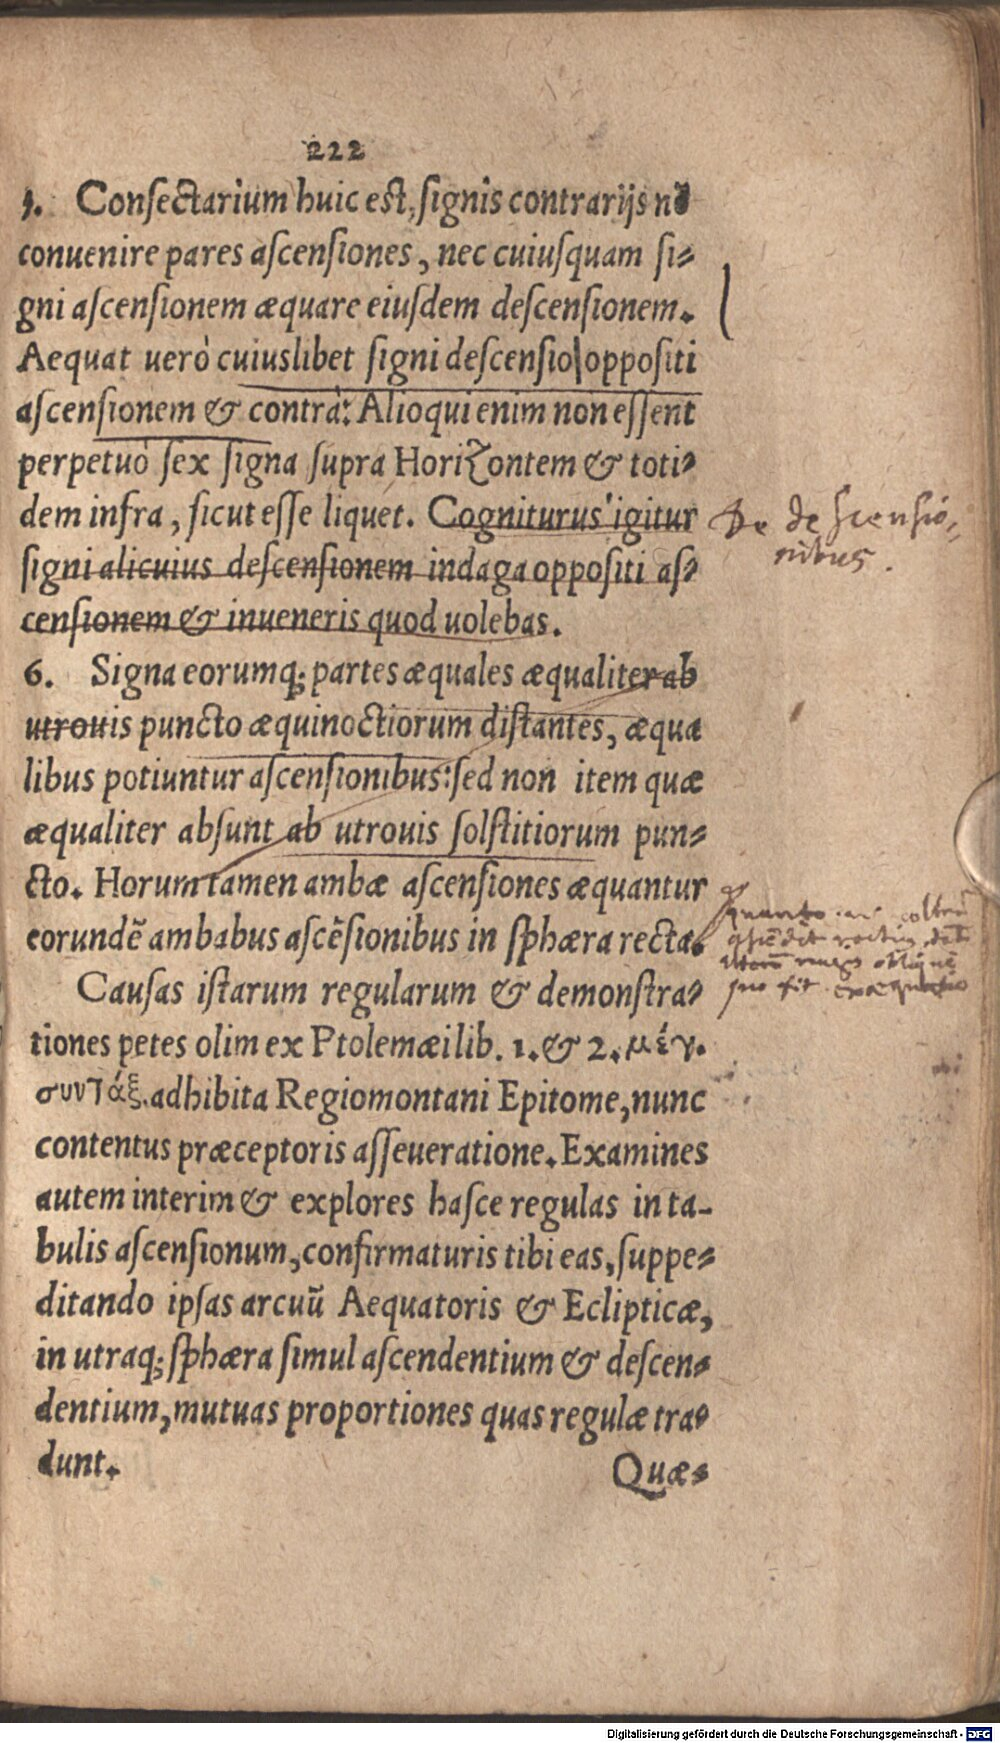 222
5. Consectarium huic est, signis contrarijs nō
conuenire pares ascensiones, nec cuiusquam si-
gni ascensionem æquare eiusdem descensionem.
Aequat verò cuiuslibet signi descensio oppositi
ascensionem & contrà: Alioqui enim non essent
perpetuò sex signa supra Horizontem & toti-
dem infra, sicut esse liquet. Cogniturus igitur
signi alicuius descensionem indaga oppositi as-
censionem & inueneris quod uolebas.
De descensio-
nibus.
6. Signa eorumq; partes æquales æqualiter ab
utrouis puncto æquinoctiorum distantes, æqua
libus potiuntur ascensionibus: sed non item quæ
æqualiter absunt ab utrouis solstitiorum pun-
cto. Horum tamen ambæ ascensiones æquantur
eorundē ambabus ascēsionibus in sphæra recta.
quanto
Causas istarum regularum & demonstra-
tiones petes olim ex Ptolemæi lib. 1. & 2. μέγ.
συντάξ. adhibita Regiomontani Epitome, nunc
contentus præceptoris asseueratione. Examines
autem interim & explores hasce regulas in ta-
bulis ascensionum, confirmaturis tibi eas, suppe-
ditando ipsas arcuū Aequatoris & Eclipticæ,
in utraq; sphæra simul ascendentium & descen-
dentium, mutuas proportiones quas regulæ tra-
dunt.
Quæ-
Digitalisierung gefördert durch die Deutsche Forschungsgemeinschaft - DFG